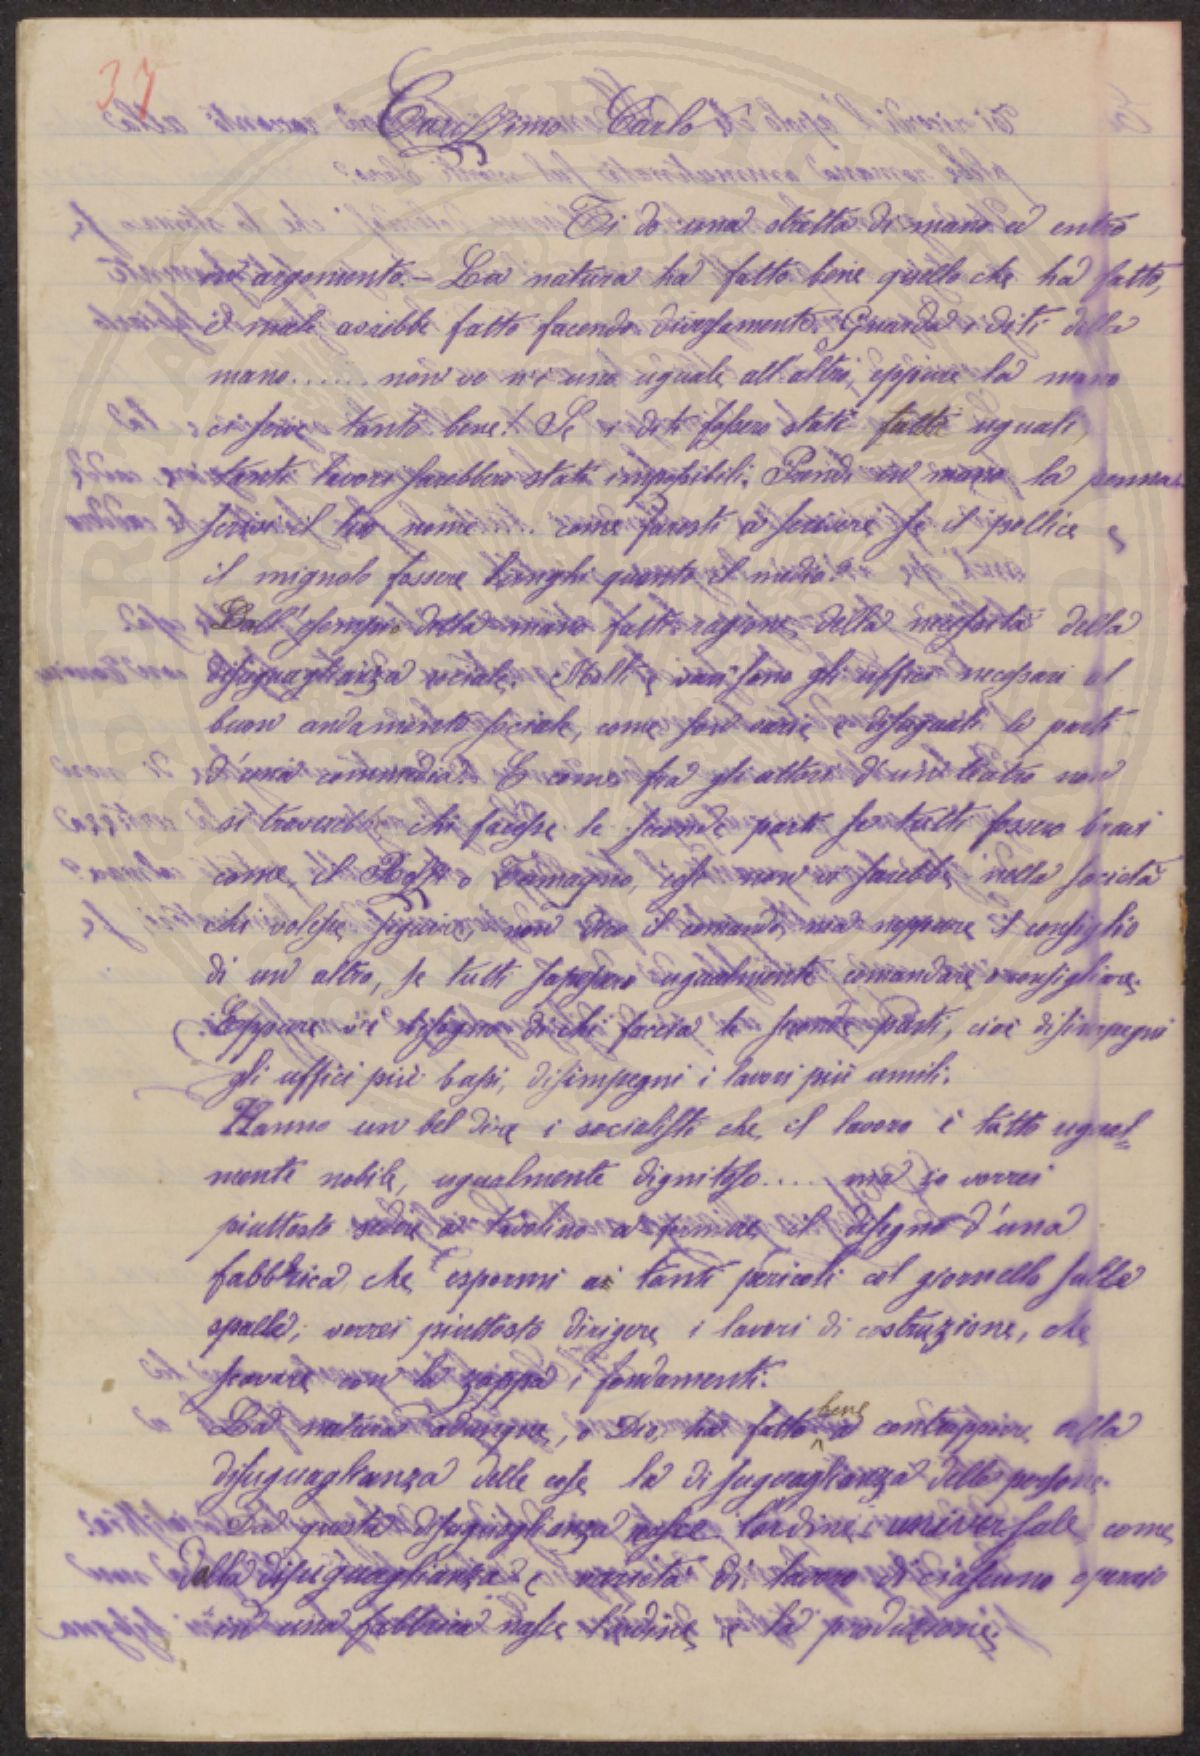 37
Carissimo Carlo
Ti do una stretta di mano ed entro
in argomento. — La natura ha fatto bene quello che ha fatto,
e male avrebbe fatto facendo diversamente. Guarda i diti della
mano...... non ve n'è uno uguale all'altro, eppure la mano
ci serve tanto bene! Se i diti fossero stati fatti uguali,
tanti lavori sarebbero stati impossibili. Prendi in mano la penna
scrivi il tuo nome.... come faresti a scrivere se il pollice e
il mignolo fossero lunghi quanto il medio?
Dall'esempio della mano fatti ragione della necessità della
disuguaglianza sociale. Molti e vari sono gli uffici necessari al
buon andamento sociale, come son varie e disuguali le parti
d'una commedia. E come fra gli attori d'un teatro non
si troverebbe chi facesse le seconde parti se tutti fossero bravi
come il Rossi o Tamagno, così non vi sarebbe nella società
chi volesse seguire, non dico il comando, ma neppure il consiglio
di un altro, se tutti sapessero ugualmente comandare o consigliare.
Eppure v'è bisogno di chi faccia le seconde parti, cioè disimpegni
gli uffici più bassi, disimpegni i lavori più umili.
Hanno un bel dire i socialisti che il lavoro è tutto ugual=
mente nobile, ugualmente dignitoso.... ma io vorrei
piuttosto sedere a tavolino a fornire il disegno d'una
fabbrica che espormi ai tanti pericoli col giornello sulle
spalle; vorrei piuttosto dirigere i lavori di costruzione, che
scavare con la zappa i fondamenti.
La natura adunque, o Dio, ha fatto bene a contrapporre alla
disuguaglianza delle cose la disuguaglianza delle persone.
Da questa disuguaglianza nasce l'ordine universale come
dalla disuguaglianza e varietà di lavoro di ciascuno operaio
in una fabbrica nasce l'ordine e la produzione.